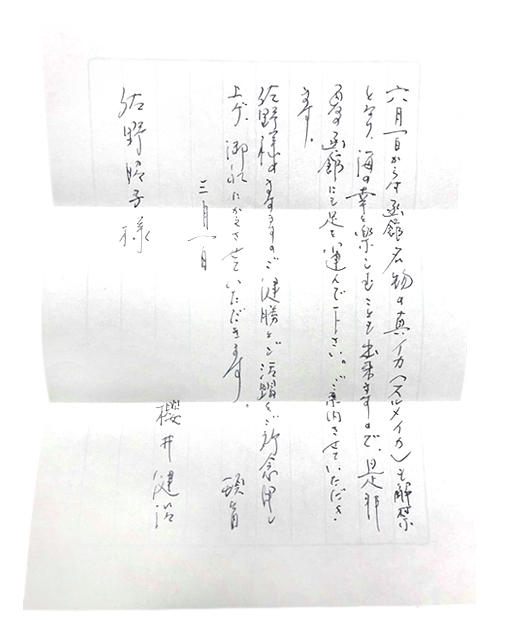 六月一日からは函館名物の真イカ（スルメイカ）も解禁
となり、海の幸を楽しむことも出来ますので、是非
函館にも足を運んで下さい。ご案内させていただき
ます。
佐野様のますますのご健勝とご活躍をご祈念申し
上げ、御礼にかえさせていただきます。
頓首
三月一日
櫻井健治
佐野昭子様